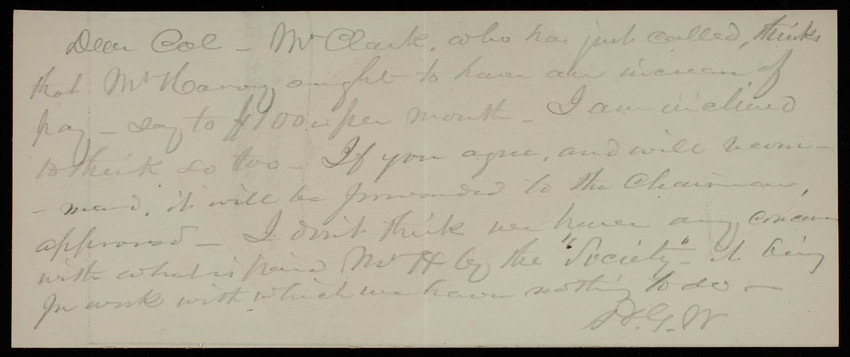 Dear Col - Mr Clark, who has just called, thinks
that Mr Harvey ought to have an increase of
pay - say to $100 per month - I am inclined
to think so too - If you agree, and will recom-
- mend, it will be forwarded to the Chairman,
approved - I don't think we have any concern
with what is paid Mr H by the "Society" - it being
for work with which we have nothing to do -
H.G.W